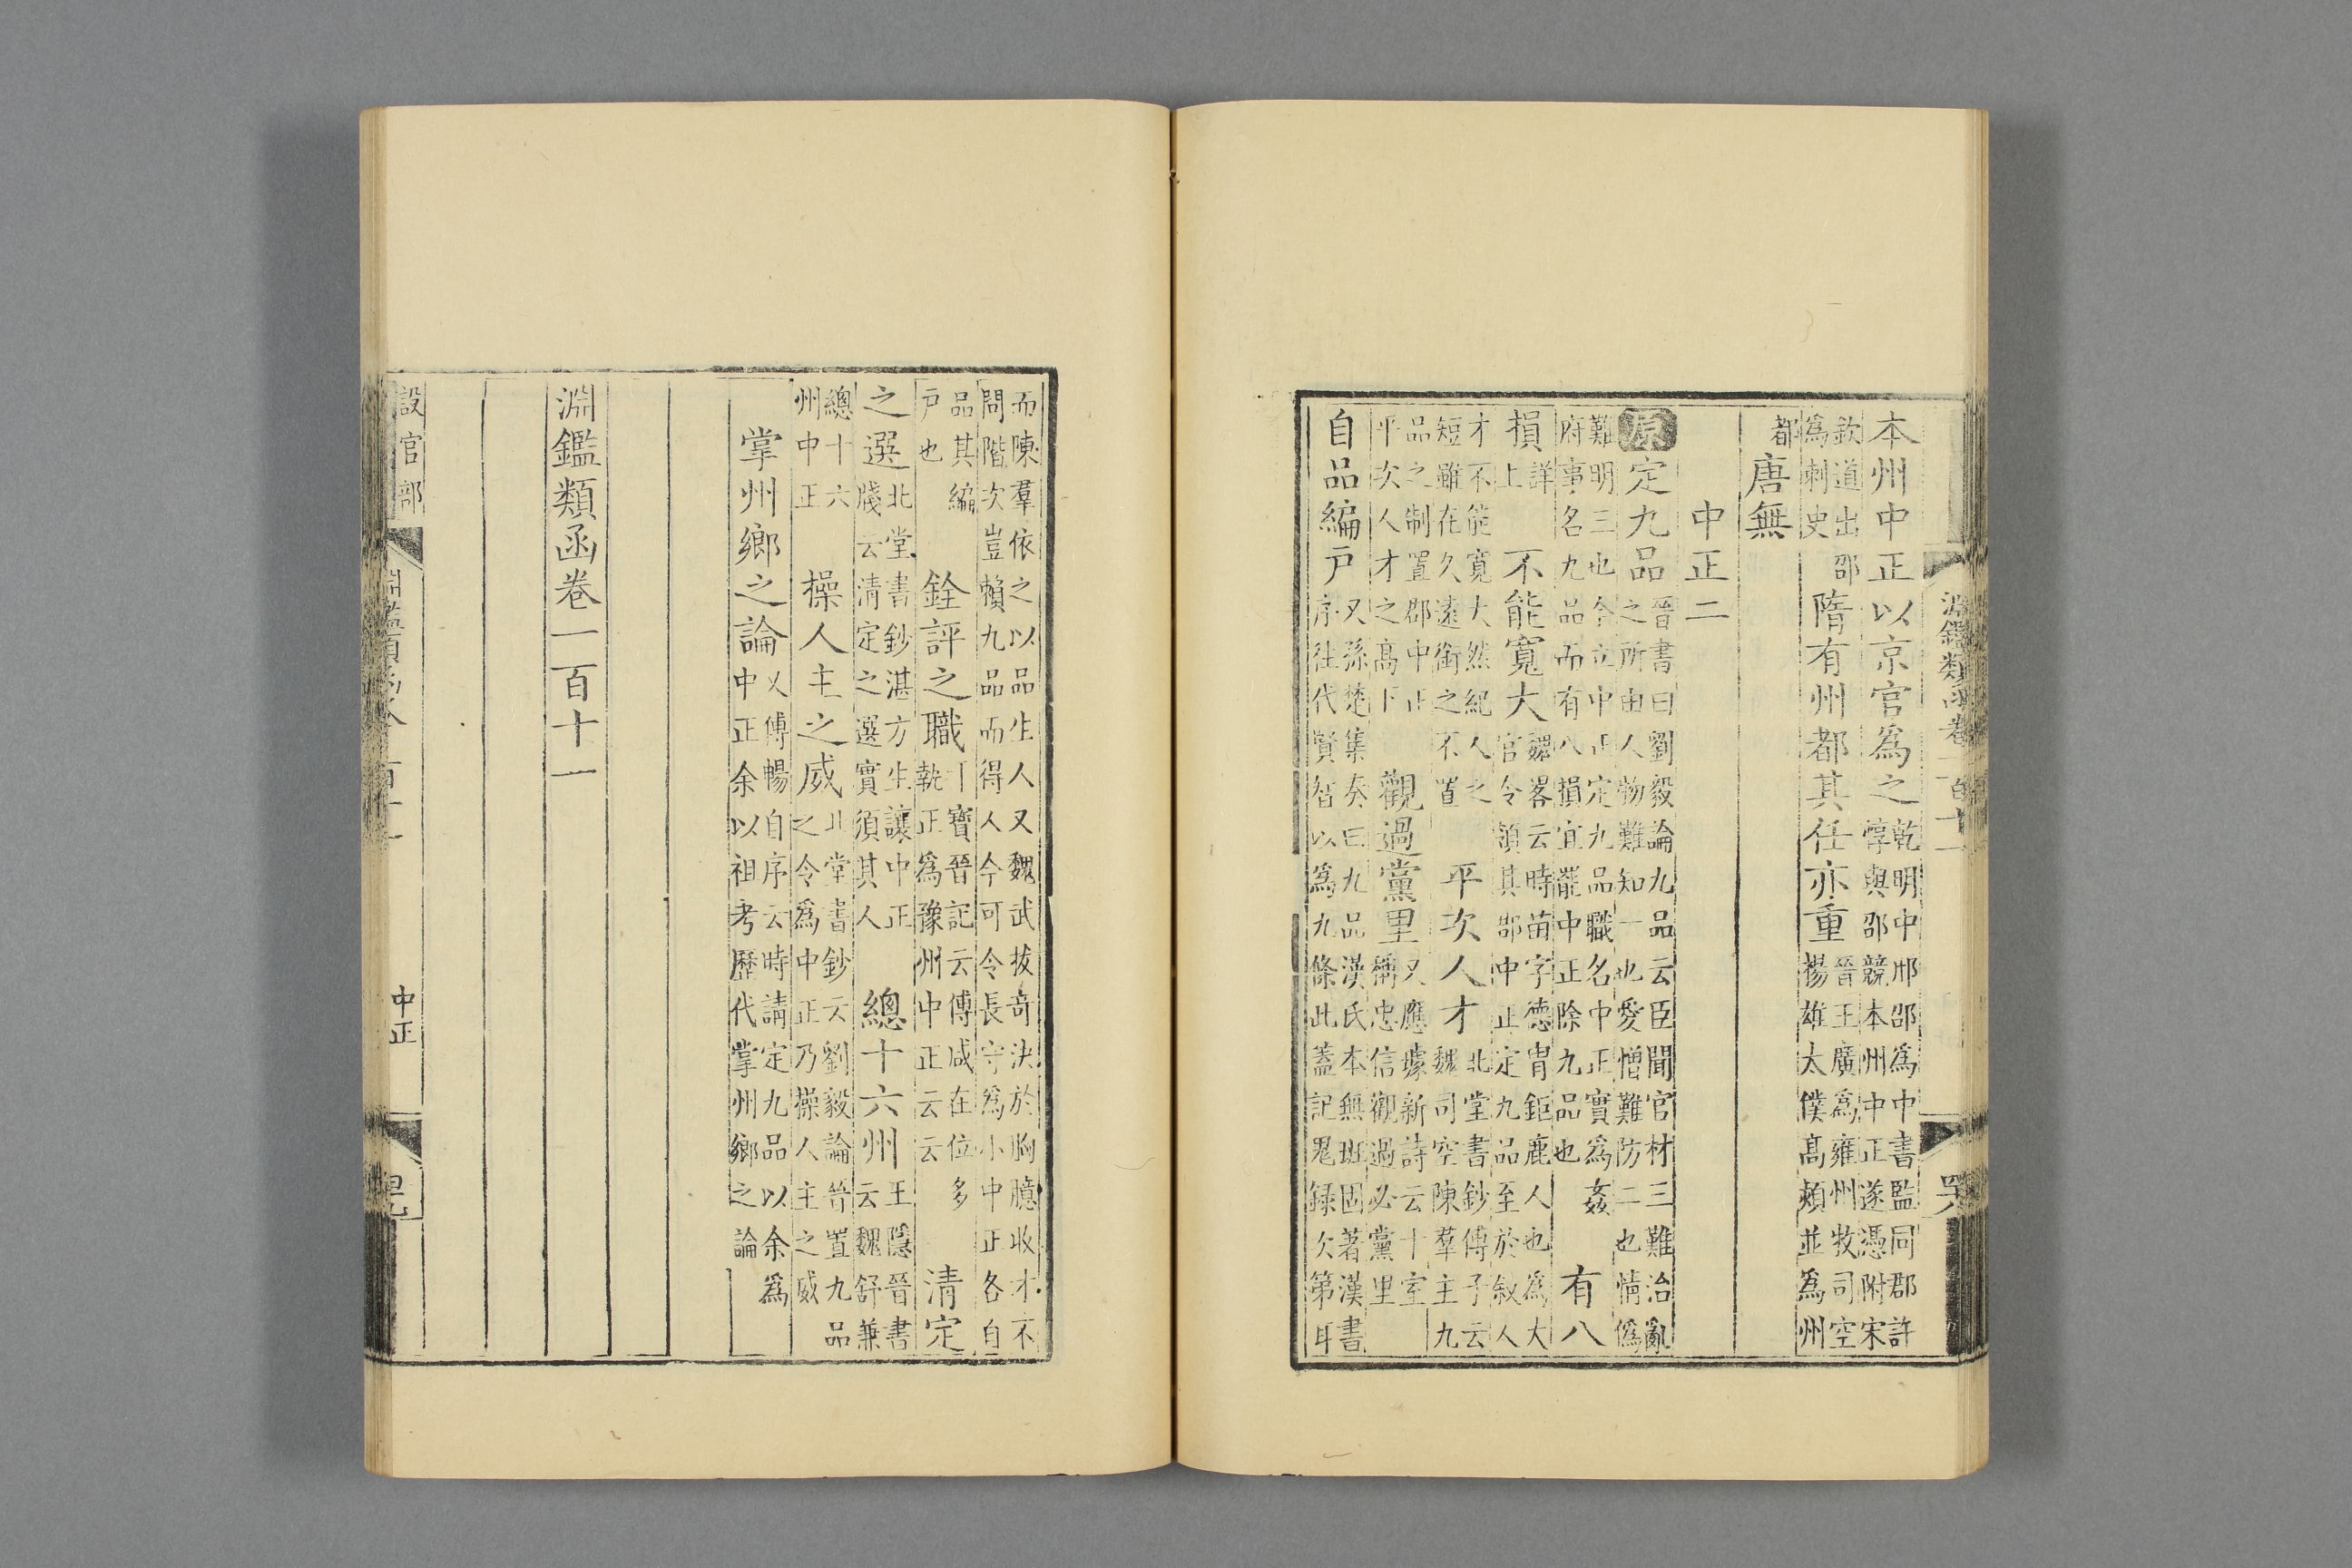 淵鑑類函卷一百十一
本州中正以京官爲之乾明中邢邵爲中書監同郡許
惇與邵競本州中正遂憑附宋
欽道出邵
爲刺史
隋有州都其任亦重晉王廣爲雍州牧司空
楊雄太僕高熲並爲州
都
唐無
中正二
原
定九品晉書曰劉毅論九品云臣聞官材三難治亂
之所由人物難知一也愛憎難防二也情僞
難明三也今立中正定九品職名中正實爲姦
府事名九品而有八損宜罷中正除九品也
有八
損詳
上
不能寬大魏畧云時苗字德胄鉅鹿人也爲大
官令領其郡中正定九品至於敘人
才不能寬大然紀人之
短雖在久遠銜之不置
平次人才北堂書鈔傅子云
魏司空陳羣主九
品之制置郡中正
平次人才之高下
觀過黨里又應璩新詩云十室
稱忠信觀過必黨里
自品編戶又孫楚集奏曰九品漢氏本無班固著漢書
序往代賢智以爲九條此蓋記鬼録次第耳
而陳羣依之以品生人又魏武拔奇決於胸臆收才不
問階次豈賴九品而得人今可令長守爲小中正各自
品其編
戶也
銓評之職干寶晉記云傅咸在位多
執正爲豫州中正云云
清定
之選北堂書鈔湛方生讓中正
牋云清定之選實須其人
總十六州王隱晉書
云魏舒兼
總十六
州中正
操人主之威北堂書鈔云劉毅論晉置九品
之令爲中正乃操人主之威
掌州鄉之論又傅暢自序云時請定九品以余爲
中正余以祖考歷代掌州鄉之論
淵鑑類函卷一百十一
設官部
中正